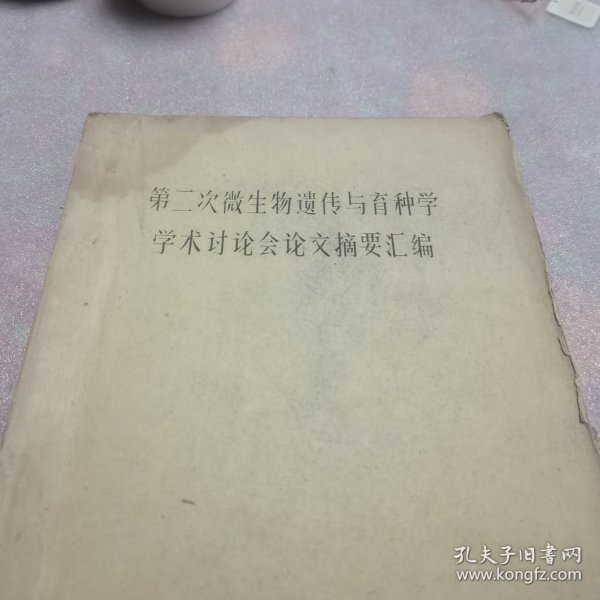 第二次微生物遗传与育种学
学术讨论会论文摘要汇编
孔夫子旧书网
www.kongfz.com